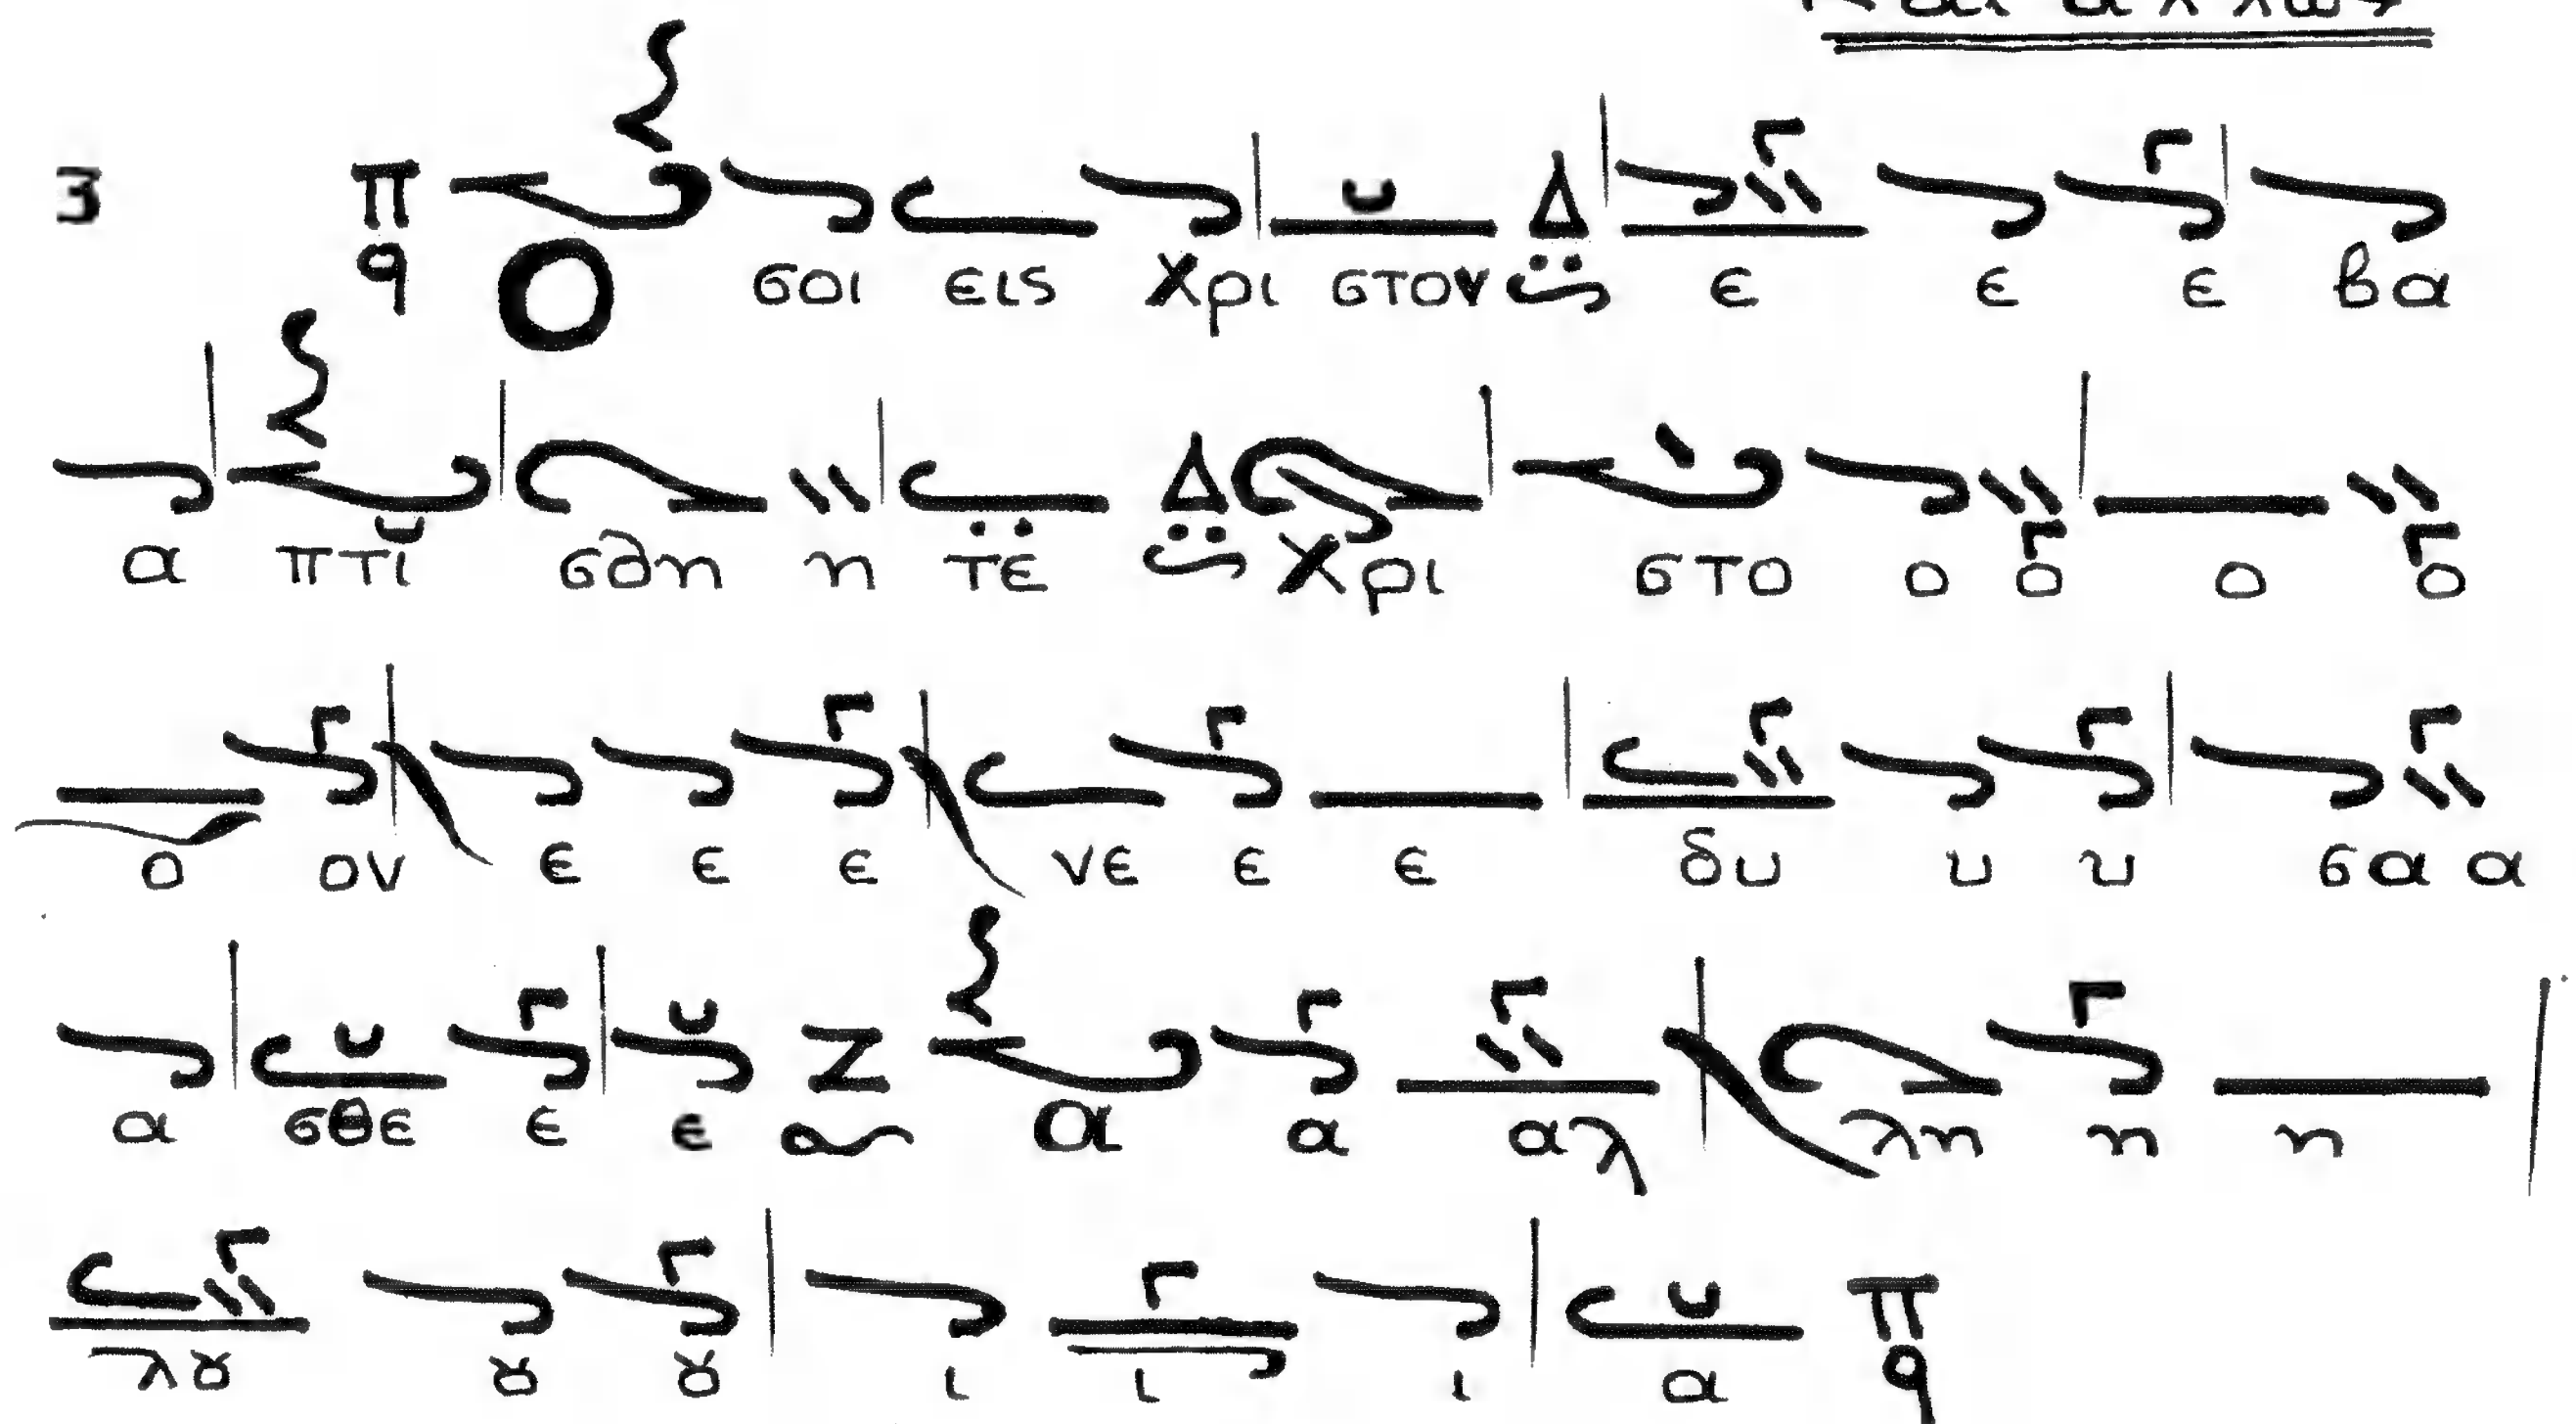 3 π q Ο σοι εις Χρι στον Δ ε ε ε βα
α πτι σθη η τε Δ Χρι στο ο ο ο ο
ο ον ε ε ε νε ε ε δυ υ υ σα α
α σθε ε ε Ζ α α αλ λη η η
λȣ ȣ ȣ ι ι ι α π q